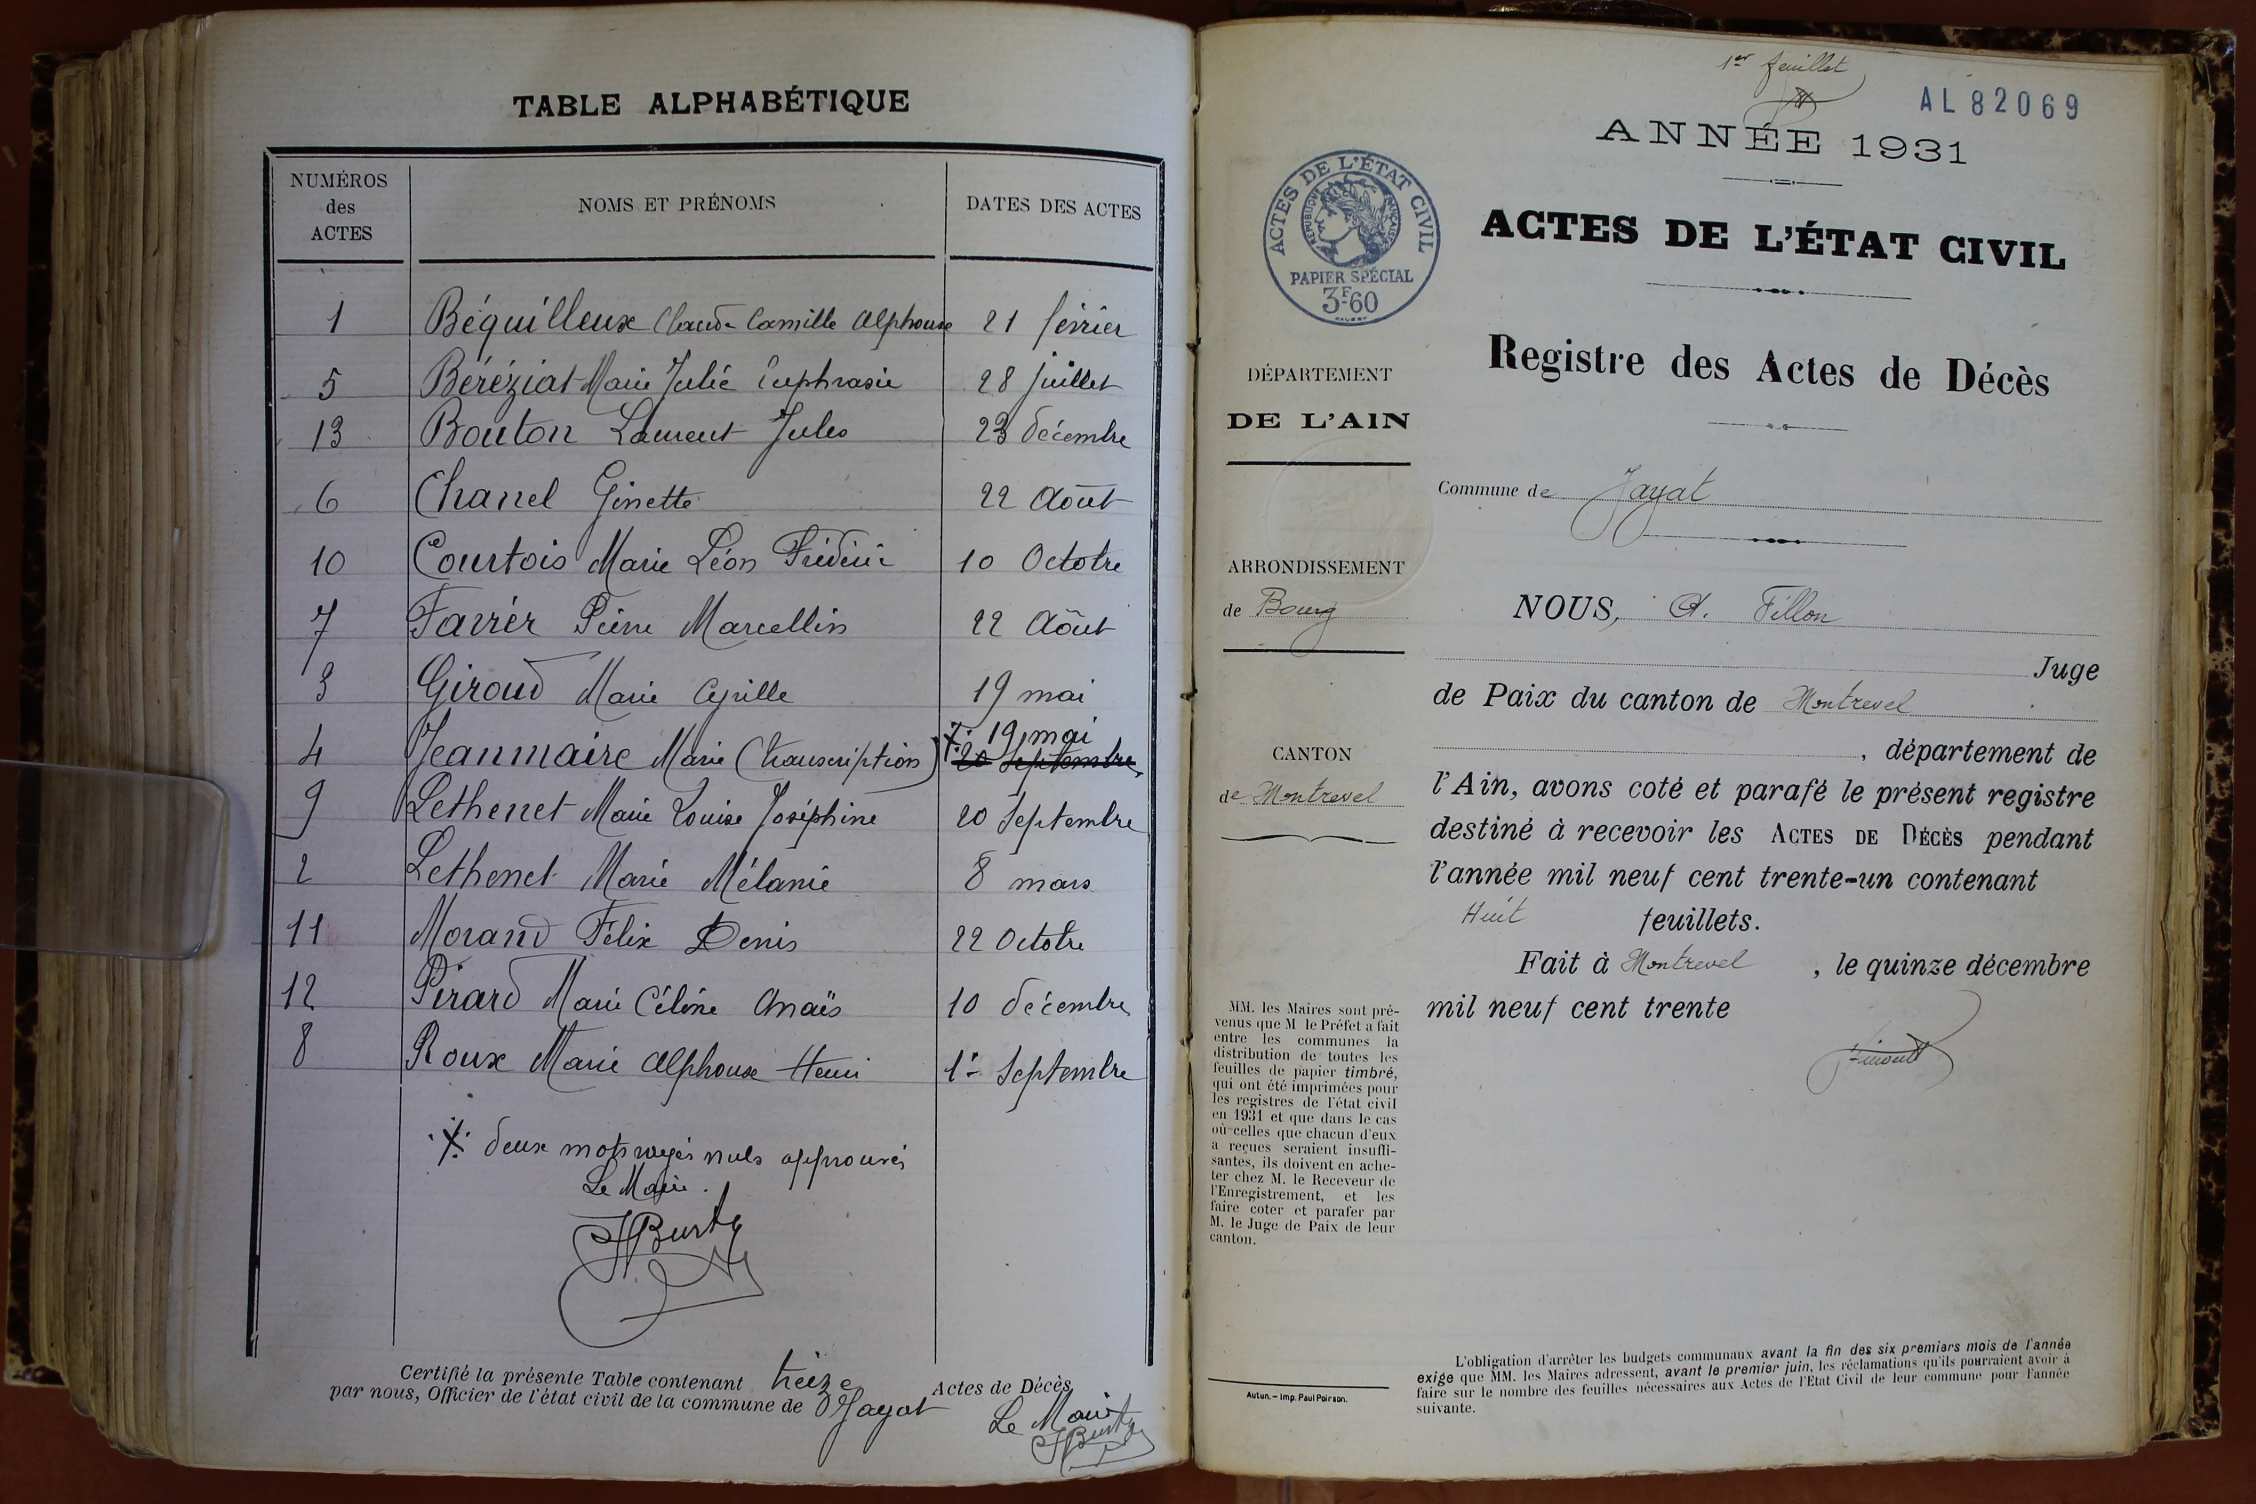 TABLE ALPHABÉTIQUE
NUMÉROS
des
ACTES
NOMS ET PRÉNOMS
DATES DES ACTES
1 Béquilleux Claude Camille Alphonse 21 février
5 Béréziat Marie Julie Euphrasie 28 juillet
13 Bouton Laurent Jules 23 décembre
6 Chanel Ginette 22 Août
10 Courtois Marie Léon Frédéric 10 Octobre
7 Favier Pierre Marcellin 22 Août
3 Giroud Marie Cyrille 19 mai
4 Jeanmaire Marie (transcription) 19 mai
20 Septembre
9 Lethenet Marie Louise Joséphine 20 Septembre
2 Lethenet Marie Mélanie 8 mars
11 Morand Félix Denis 22 Octobre
12 Pirard Marie Céline Anaïs 10 décembre
8 Roux Marie Alphonse Henri 1er Septembre
deux mots rayés nuls approuvés
Le Maire.
Certifié la présente Table contenant treize Actes de Décès
par nous, Officier de l'état civil de la commune de Jayat
Le Maire
1er feuillet
AL 82069
ANNÉE 1931
ACTES DE L'ÉTAT CIVIL
RÉPUBLIQUE FRANÇAISE
PAPIER SPÉCIAL
3F60
ACTES DE L'ÉTAT CIVIL
Registre des Actes de Décès
DÉPARTEMENT
DE L'AIN
Commune de Jayat
ARRONDISSEMENT
de Bourg
CANTON
de Montrevel
NOUS, A. Fillon
Juge
de Paix du canton de Montrevel
, département de
l'Ain, avons coté et parafé le présent registre
destiné à recevoir les ACTES DE DÉCÈS pendant
l'année mil neuf cent trente-un contenant
Huit feuillets.
Fait à Montrevel , le quinze décembre
mil neuf cent trente
MM. les Maires sont pré-
venus que M le Préfet a fait
entre les communes la
distribution de toutes les
feuilles de papier timbré,
qui ont été imprimées pour
les registres de l'état civil
en 1931 et que dans le cas
où celles que chacun d'eux
a reçues seraient insuffi-
santes, ils doivent en ache-
ter chez M. le Receveur de
l'Enregistrement, et les
faire coter et parafer par
M. le Juge de Paix de leur
canton.
Autun. – Imp. Paul Poirson.
L'obligation d'arrêter les budgets communaux avant la fin des six premiers mois de l'année
exige que MM. les Maires adressent, avant le premier juin, les réclamations qu'ils pourraient avoir à
faire sur le nombre des feuilles nécessaires aux Actes de l'Etat Civil de leur commune pour l'année
suivante.